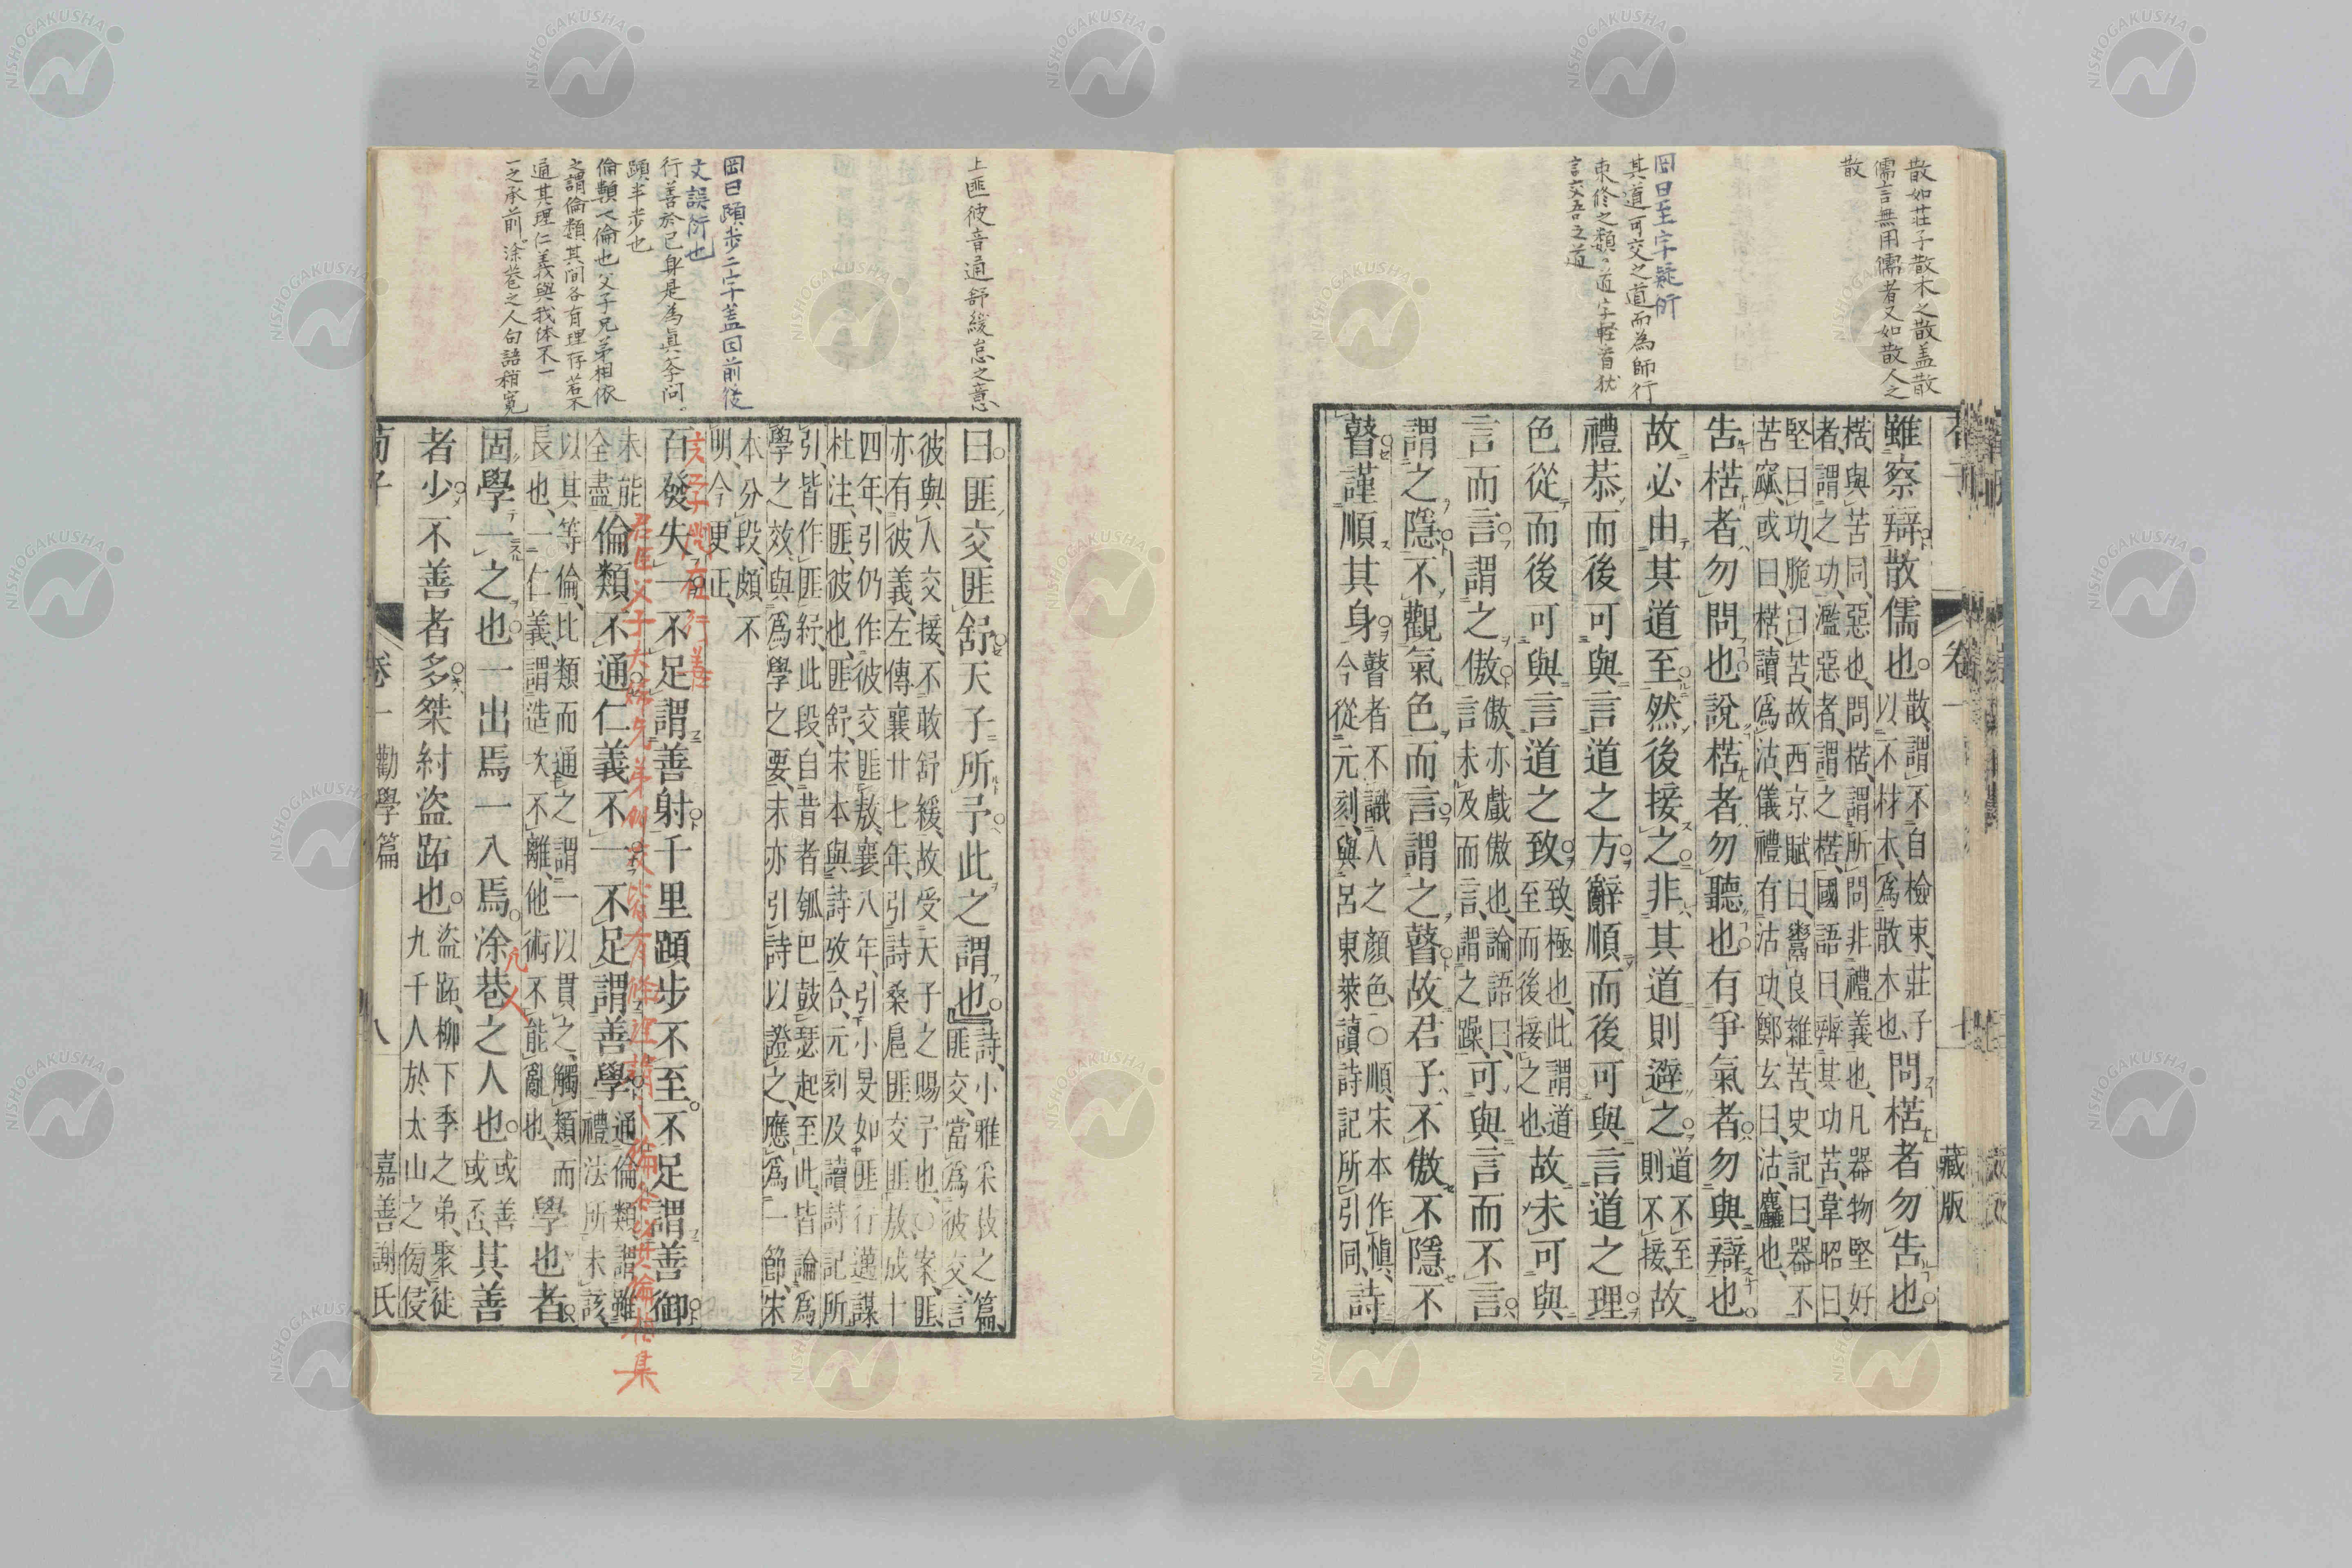 散如荘子散木之散蓋散
儒言無用儒者又如散人之
散
岡曰至字疑衍
其道可交之道而為師行
束修之類、道字軽看犹
言交吾之道
荀子 卷一 七 藏版
雖察辯散儒也散謂不自檢束莊子
以不材木爲散木也問楛者勿告也
楛與苦同惡也問楛謂所問非禮義也凡器物堅好
者謂之功濫惡者謂之楛國語曰辨其功苦韋昭曰
堅曰功脆曰苦故西京賦曰鬻良雜苦史記曰器不
苦窳或曰楛讀爲沽儀禮有沽功鄭玄曰沽麤也
告楛者勿問也說楛者勿聽也有爭氣者勿與辯也
故必由其道至然後接之非其道則避之道不至
則不接故
禮恭而後可與言道之方辭順而後可與言道之理
色從而後可與言道之致致極也此謂道
至而後接之也故未可與
言而言謂之傲傲亦戲傲也論語曰
言未及而言謂之躁可與言而不言
謂之隱不觀氣色而言謂之瞽故君子不傲不隱不
瞽謹順其身瞽者不識人之顏色○順宋本作愼
今從元刻與呂東萊讀詩記所引同詩
上匪彼音通舒緩怠之意
岡曰蹞步二字蓋因前後
文誤衍也
行善於己身是為真孝问。
蹞半步也
倫類人倫也父子兄弟相依
之謂倫類其间各有理存若不
通其理仁義與我体不一
一之承前涂巷之人句語稍寬
曰匪交匪舒天子所予此之謂也詩小雅采菽之篇
匪交當爲彼交言
彼與人交接不敢舒緩故受天子之賜予也○案匪
亦有彼義左傳襄廿七年引詩桑扈匪交匪敖成十
四年引仍作彼交匪敖襄八年引小旻如匪行邁謀
杜注匪彼也匪舒宋本與詩攷合元刻及讀詩記所
引皆作匪紓此段自昔者瓠巴鼓瑟起至此皆論爲
學之效與爲學之要末亦引詩以證之應爲一節宋
本分段頗不
明今更正
百發失一不足謂善射千里蹞步不至不足謂善御
未能
全盡倫類不通仁義不一不足謂善學通倫類謂雖
禮法所未該
以其等倫比類而通之謂一以貫之觸類而
長也一仁義謂造次不離他術不能亂也學也者
固學一之也一出焉一入焉涂巷之人也或善
或否其善
者少不善者多桀紂盜跖也盜跖柳下季之弟聚徒
九千人於太山之傍侵
荀子 卷一 勸學篇 八 嘉善謝氏
凡人